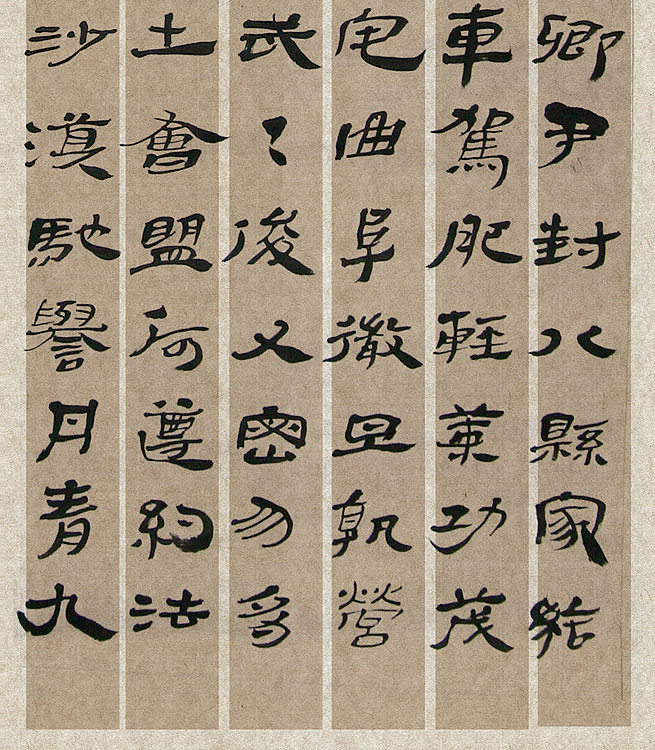 卿戶封八縣家給
車駕肥輕策功茂
宅曲阜微旦孰營
武丁俊乂密勿多
土會盟何遵約法
沙漠馳譽丹青九